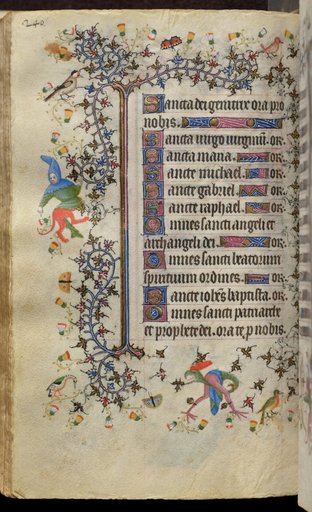 240.
Sancta dei genitrix ora pro
nobis.
Sancta virgo virginũ. or.
Sancta maria. or.
Sancte michael. or.
Sancte gabriel. or.
Sancte raphael. or.
Omnes sancti angeli et
archangeli dei. or.
Omnes sancti beatorum
spirituum ordines. or.
Sancte ioh̃es baptista. or.
Omnes sancti patriarche
et prophete dei. orate p nobis.